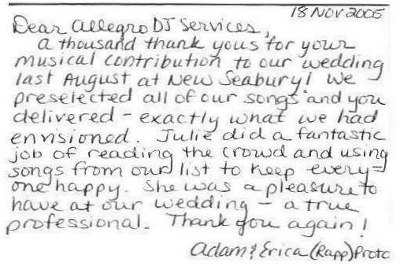 18 NOV 2005
Dear Allegro DJ Services,
a thousand thank yous for your
musical contribution to our wedding
last August at New Seabury! We
preselected all of our songs and you
delivered - exactly what we had
envisioned. Julie did a fantastic
job of reading the crowd and using
songs from our list to keep every-
one happy. She was a pleasure to
have at our wedding - a true
professional. Thank you again!
Adam & Erica (Rapp) Proto